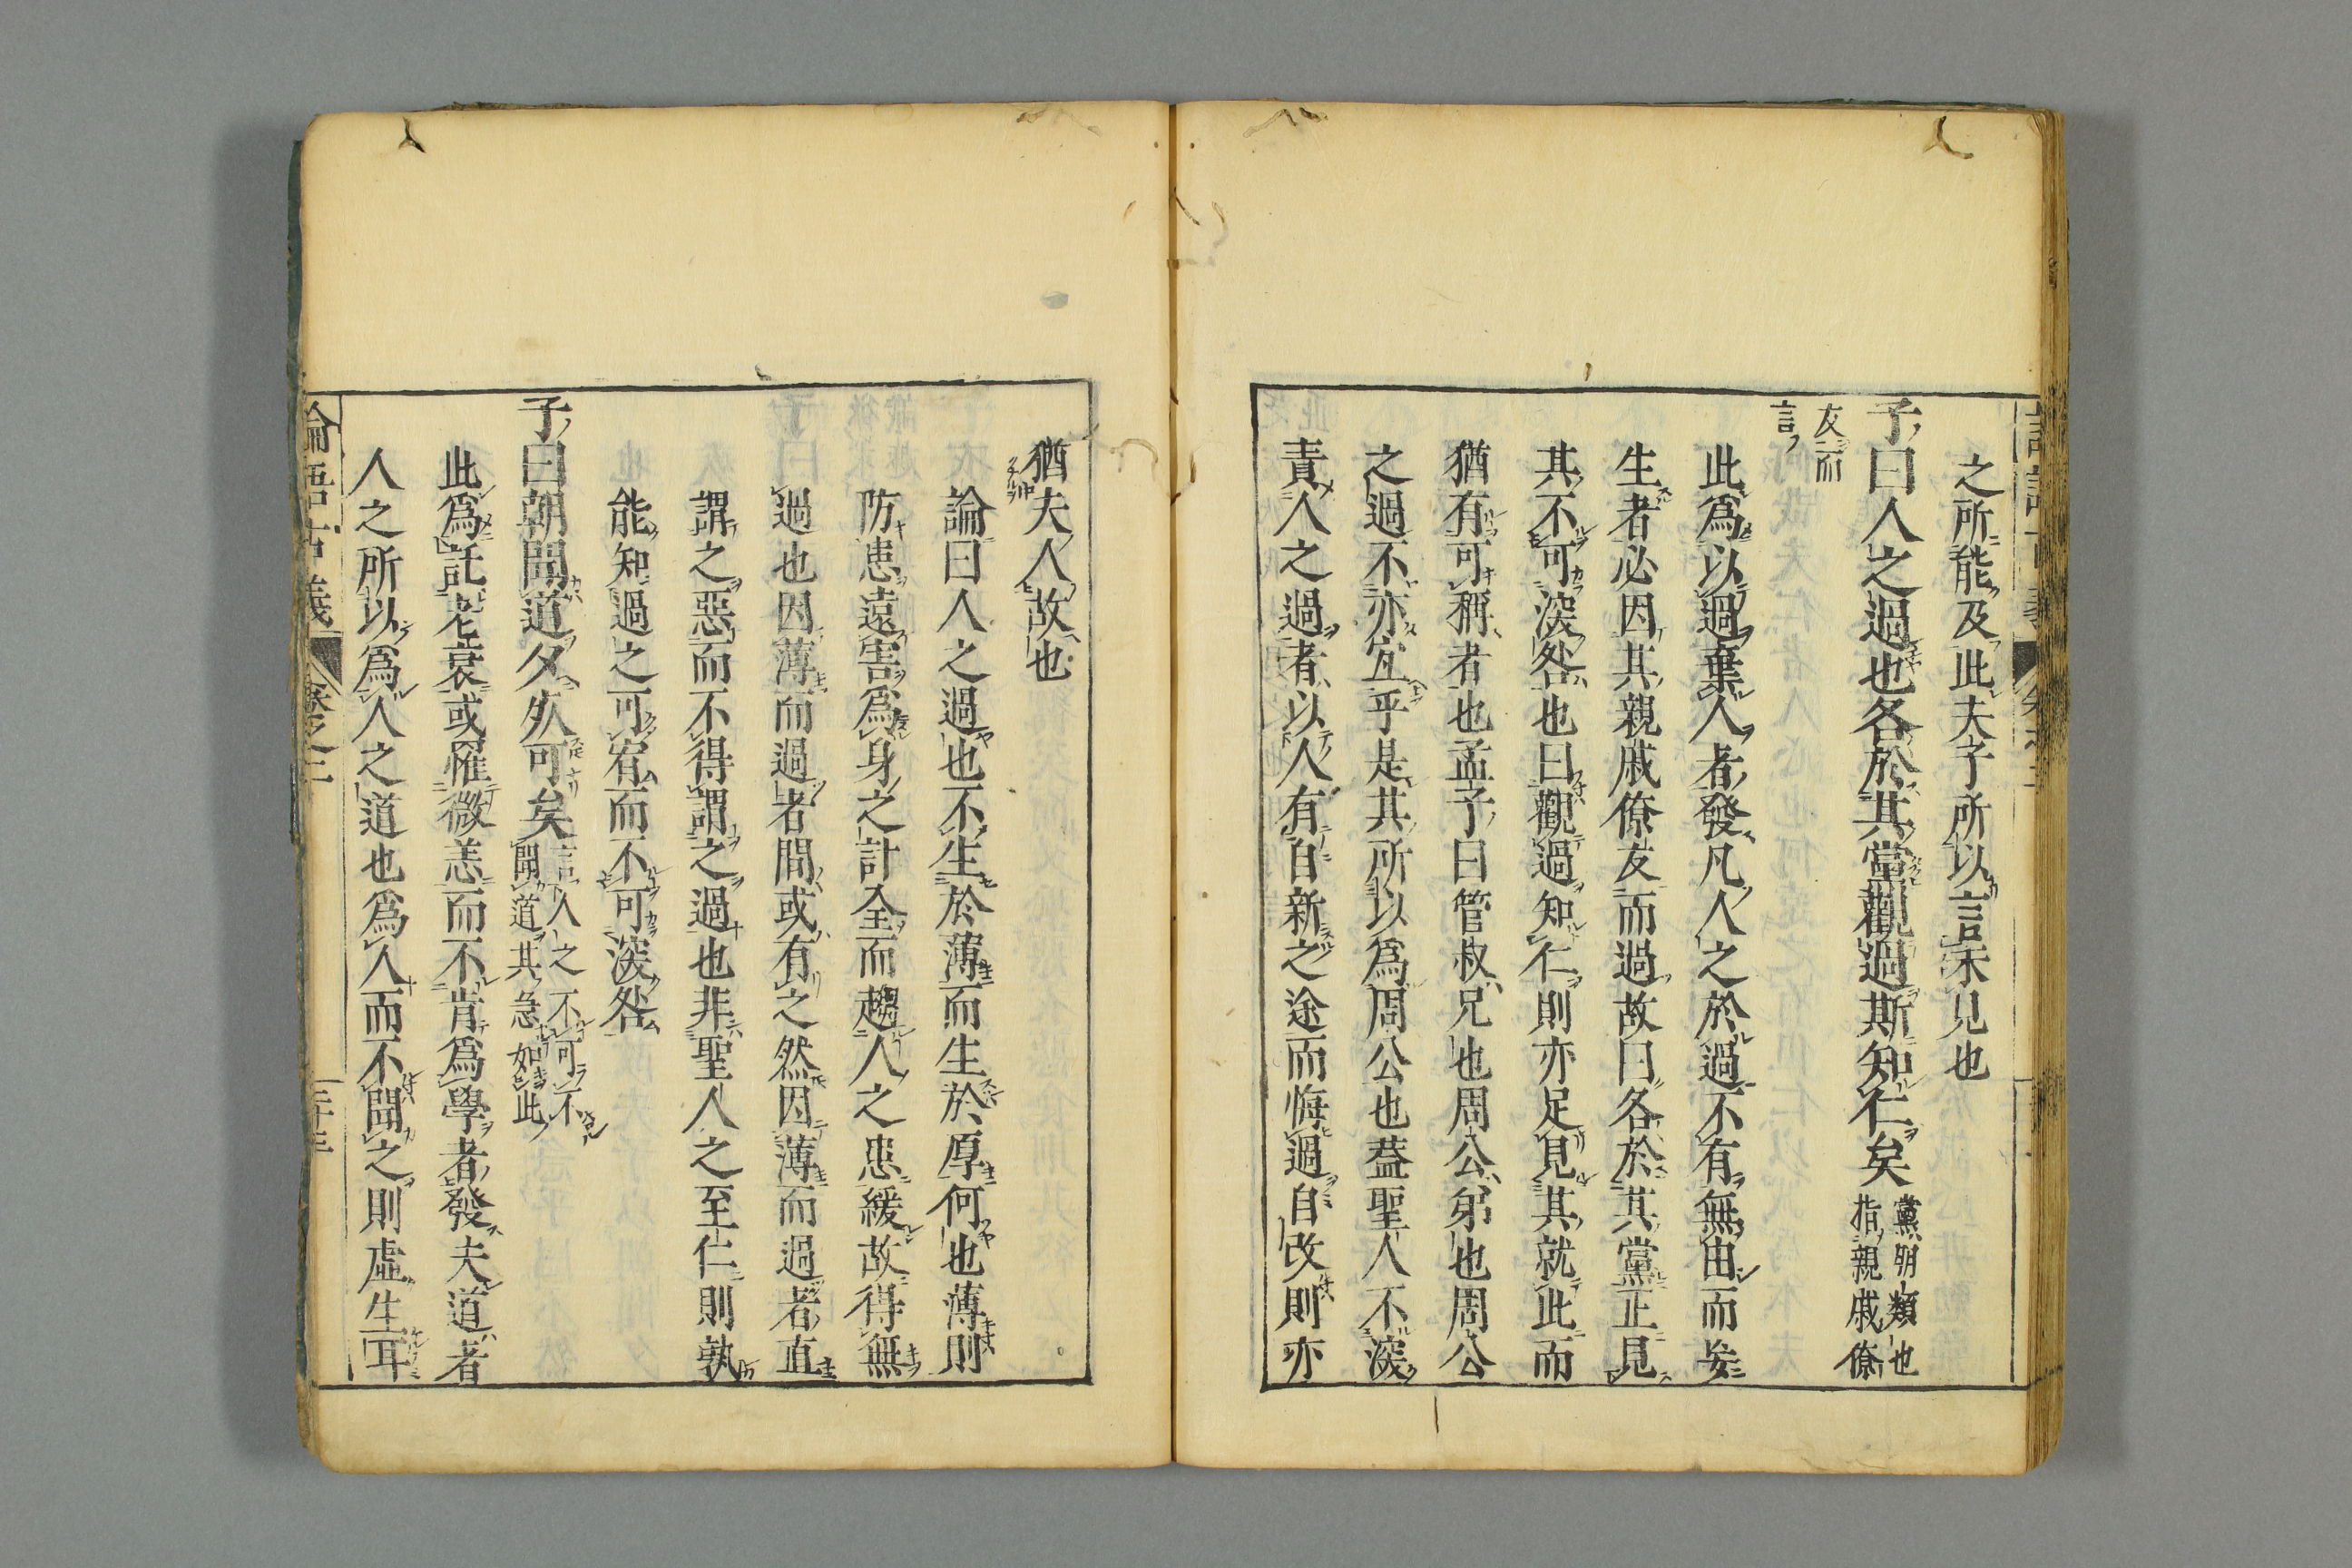 之所能及此夫子所以言未見也
子曰人之過也各於其黨觀過斯知仁矣黨朋類也指親戚僚
友而言
此爲以過棄人者發凡人之於過不有無由而妄
生者必因其親戚僚友而過故曰各於其黨正見
其不可深咎也曰觀過知仁則亦足見其就此而
猶有可稱者也孟子曰管叔兄也周公弟也周公
之過不亦宜乎是其所以爲周公也蓋聖人不深
責人之過者以人有自新之途而悔過自改則亦
猶夫人故也
論曰人之過也不生於薄而生於厚何也薄則
防患遠害爲身之計全而趨人之患緩故得無
過也因薄而過者間或有之然因薄而過者直
謂之惡而不得謂之過也非聖人之至仁則孰
能知過之可宥而不可深咎
子曰朝聞道夕死可矣言人之不可不聞道其急如此
此爲託老衰或罹微恙而不肯爲學者發夫道者
人之所以爲人之道也爲人而不聞之則虛生耳
論語古義 卷之二